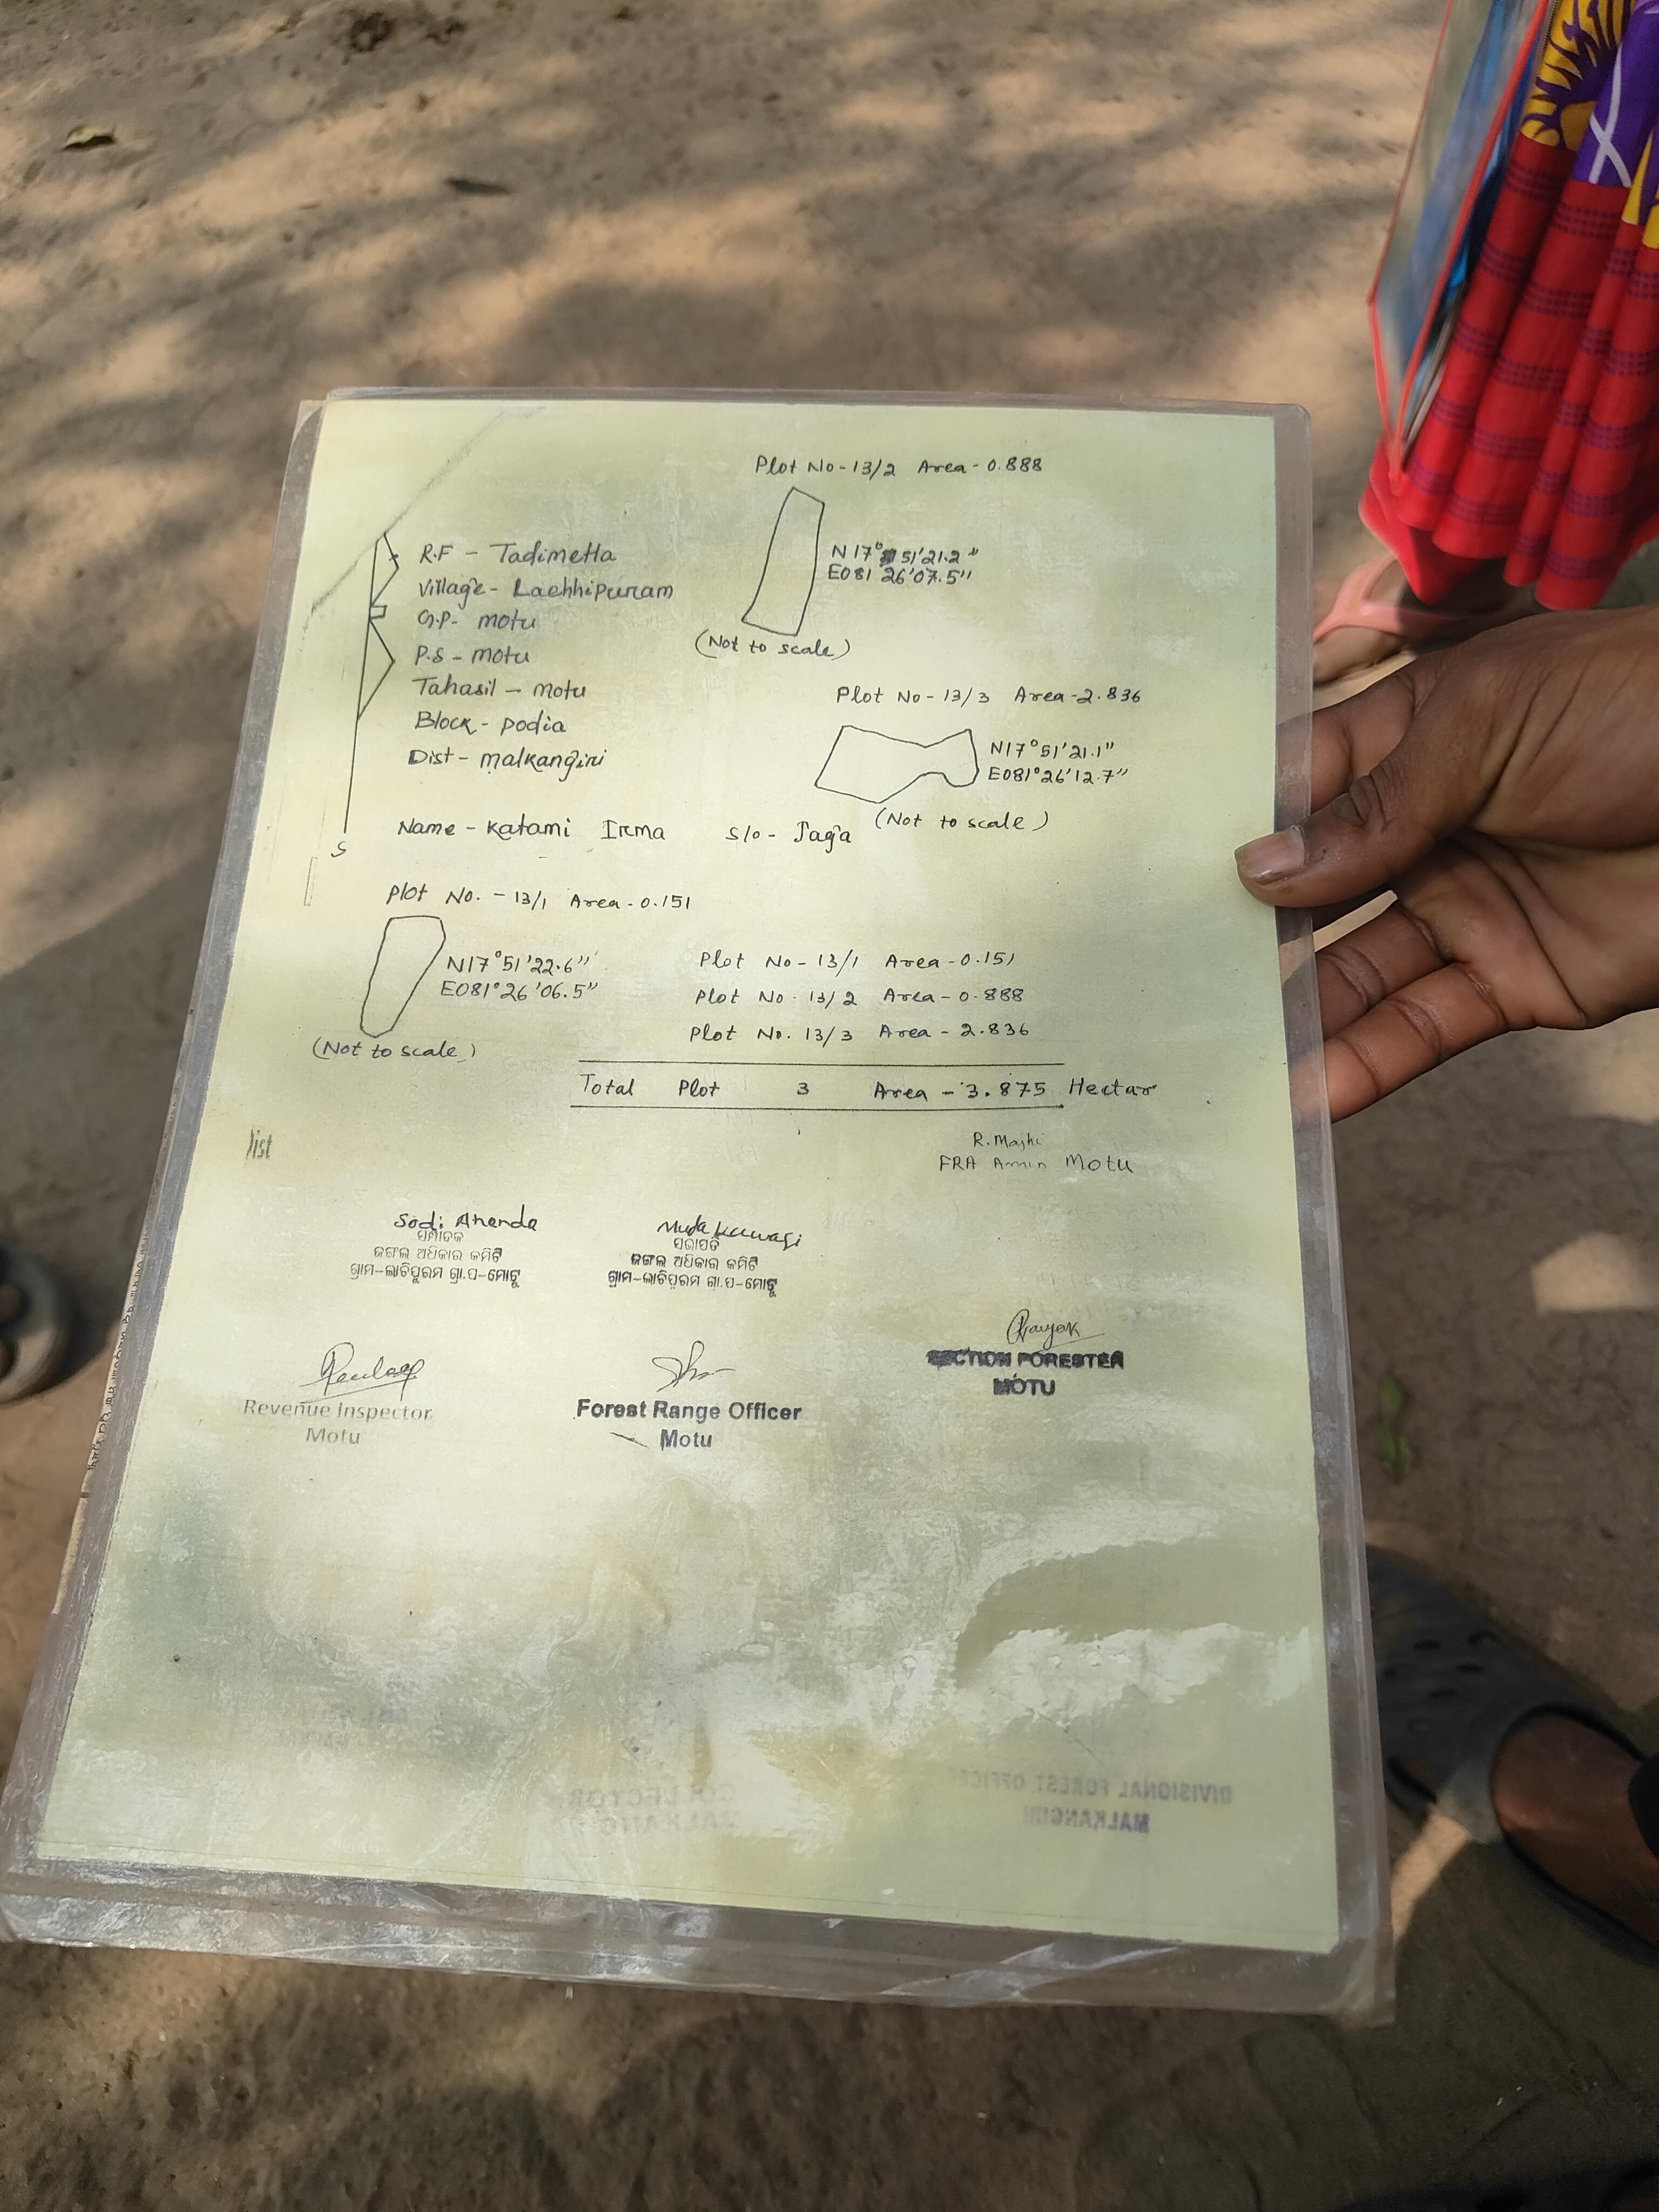 Plot No-13/2 Area-0.888
N17°51'21.2"
E081 26'07.5"
(Not to scale)
R.F - Tadimetla
Village- Lachhipuram
G.P- motu
P.S - motu
Tahasil - motu
Block - podia
Dist - malkangiri
Plot No-13/3 Area-2.836
N17°51'21.1"
E081°26'12.7"
(Not to scale)
Name - Katami Irma S/o - Jaga
S
Plot No. - 13/1 Area-0.151
N17°51'22.6"
E081°26'06.5"
(Not to scale)
Plot No-13/1 Area-0.151
Plot No. 13/2 Area-0.888
Plot No. 13/3 Area-2.836
Total Plot 3 Area - 3.875 Hectar
list
R. Majhi
FRA Amin Motu
Sodi Ananda
ସମ୍ପାଦକ
ଜଙ୍ଗଲ ଅଧିକାର କମିଟି
ଗ୍ରାମ-ଲାଚିପୁରମ ଗ୍ରା.ପ-ମୋଟୁ
Muda Kawasi
ସଭାପତି
ଜଙ୍ଗଲ ଅଧିକାର କମିଟି
ଗ୍ରାମ-ଲାଚିପୁରମ ଗ୍ରା.ପ-ମୋଟୁ
SECTION FORESTER
MOTU
Revenue Inspector
Motu
Forest Range Officer
Motu
COLLECTOR
MALKANGIRI
DIVISIONAL FOREST OFFICER
MALKANGIRI